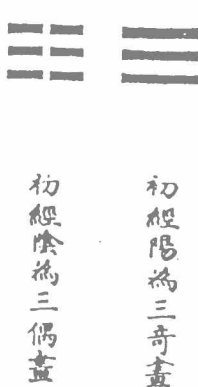 初經陽為三奇畫
初經陰為三偶畫